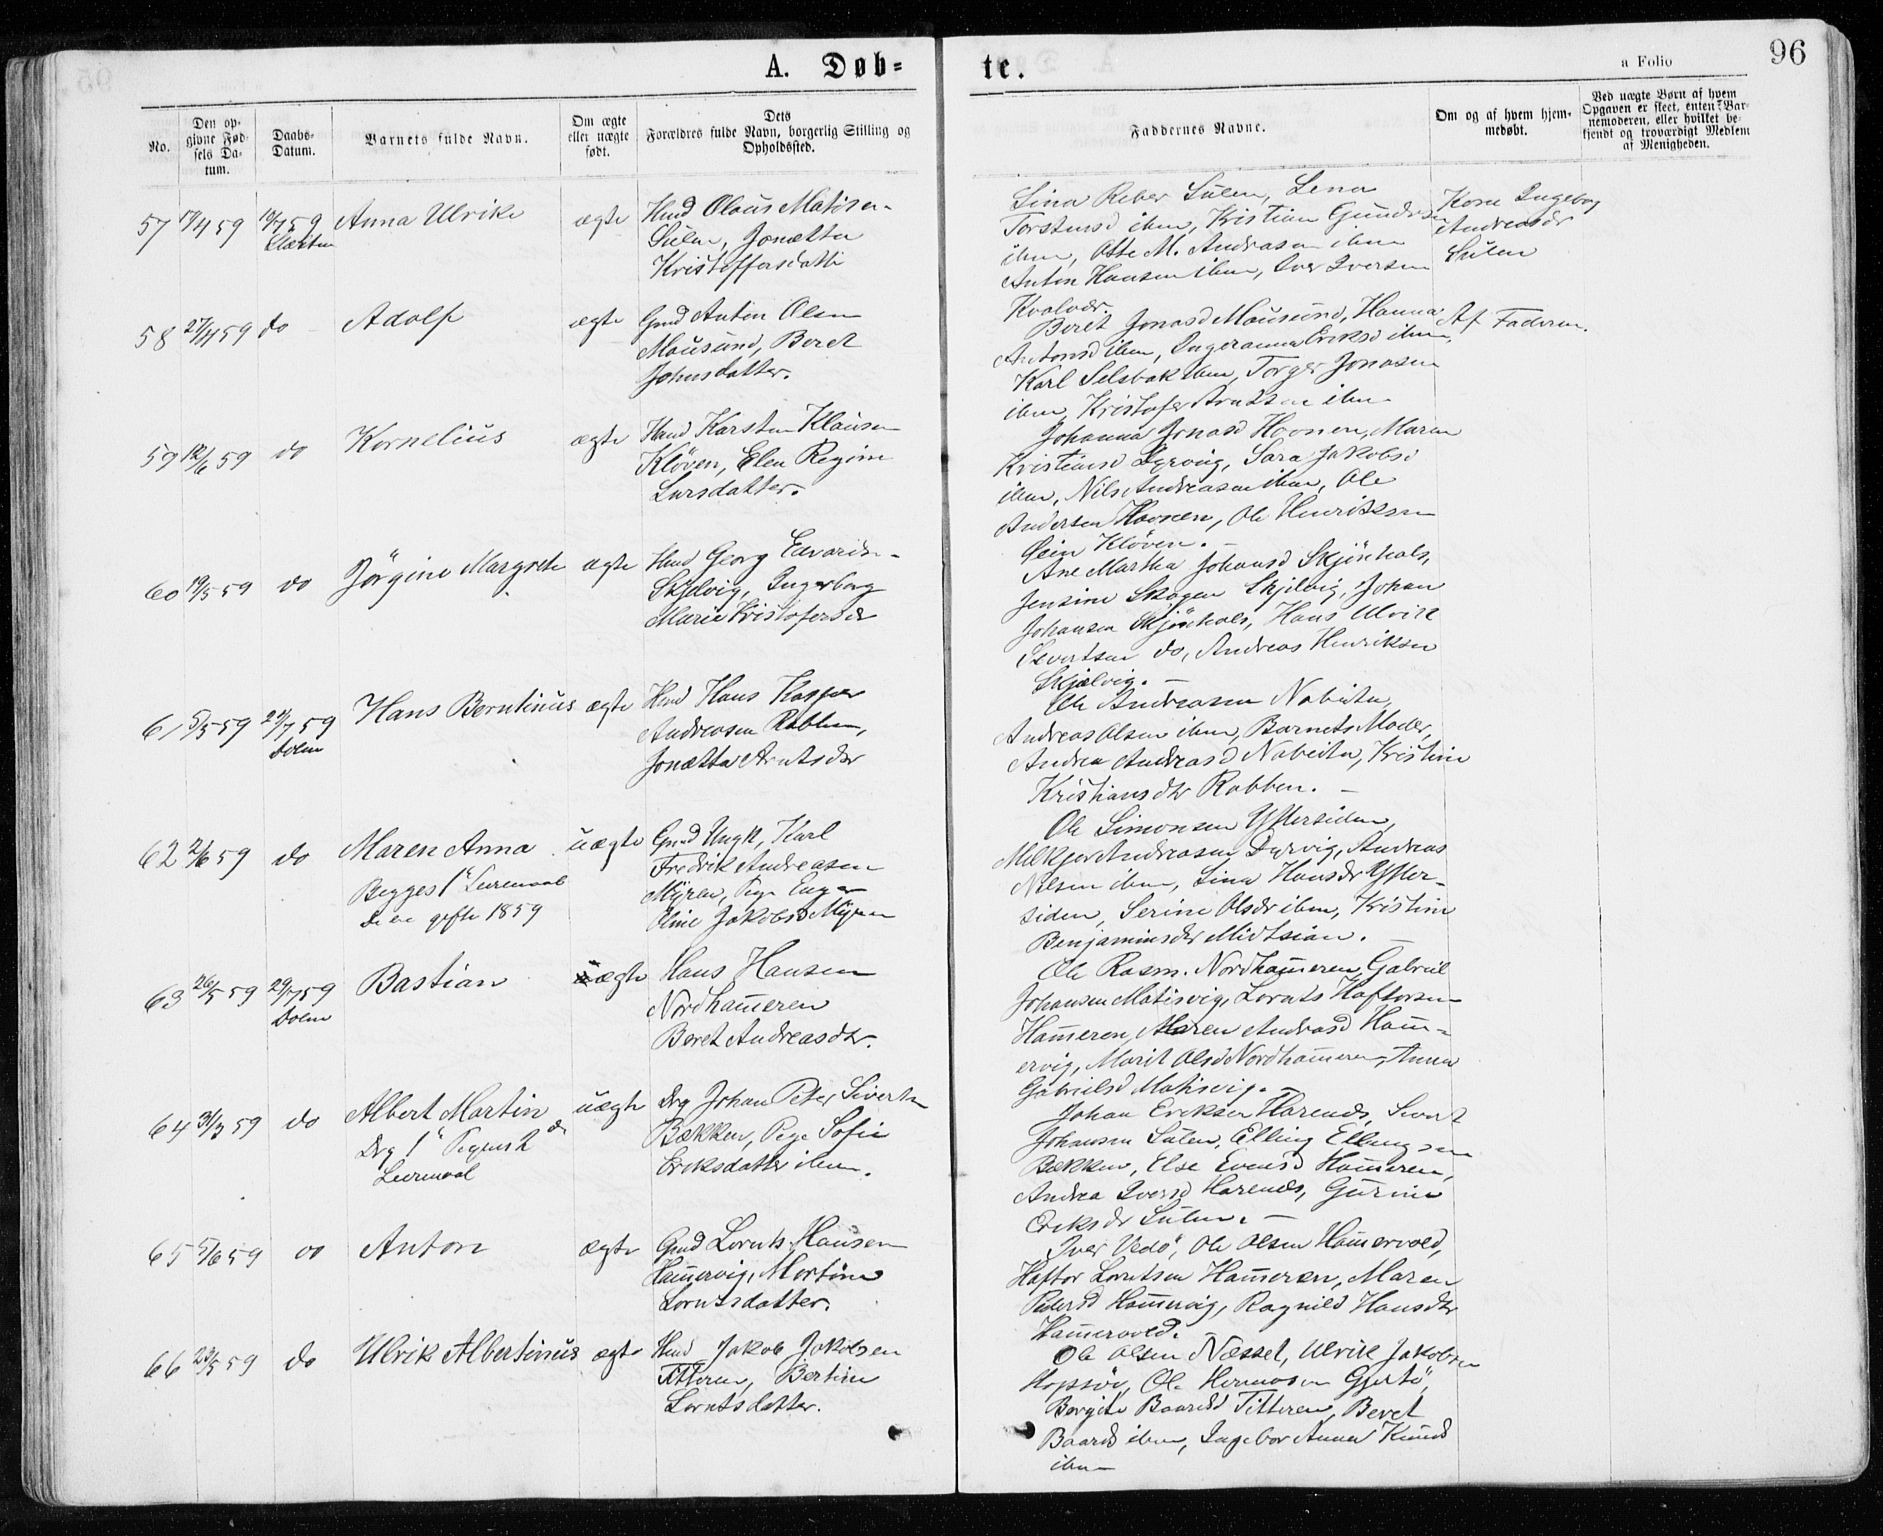 A. Døb=
te.
a Folio
96
No.
Den op-
givne Fød-
sels Da-
tum.
Daabs-
Datum.
Barnets fulde Navn.
Om ægte
eller uægte
født.
Dets
Forældres fulde Navn, borgerlig Stilling og
Opholdssted.
Faddernes Navne.
Om og af hvem hjem-
medøbt.
Ved uægte Børn af hvem
Opgaven er skeet, enten Bar-
nemoderen, eller hvilket be-
kjendt og troværdigt Medlem
af Menigheden.
57 17/4 59
59
Anna Ulrike
ægte
Hmd Olaus Matisen
Sulen, Jonætta
Kristoffersdatte
Sina Reber Sulen, Lena
Torstensd ibm, Kristian Gundersen
ibm, Otte M. Andreasen ibm
Anton Hansen ibm, Iver Iversen
Kvalvær.
Andreasdr
Sulen
58 27/4 59 do
Adolf
ægte
Gmd Anton Olsen
Mausund, Beret
Johnsdatter.
Beret Jonasd Mausund, Hanna
Antonsd ibm, Ingeranna Eriksd ibm,
Karl Selsbak ibm, Torger Jonasen
ibm, Kristofer ibm
Af Faderen.
59 12/6 59 do
Kornelius
ægte
Hmd Karsten Klausen
Kløven, Elen Regine
Larsdatter.
Johanna Jonasd Hovnen, Maren
Kristiansd Dyrvig, Sara Jakobsd
ibm, Nils Andreasen ibm, Ole
Andersen Hovnen, Ole Henriksen
Kløven.
60 19/5 59 do
Jørgine Margrete
ægte
Hmd Georg Edvardsen
Skjelvig, Ingerborg
Marie Kristofersdr
Ane Martha Johansd Skjönhals,
Jensine Skogen Skjelvig, Johan
Johansen Skjönhals, Hans Ulrik
Sivertsen do, Andreas Henriksen
Skjælvig.
61 5/5 59 /7 59
Dolm
Hans Berntinus
ægte
Hmd Hans Kasper
Andreasen Rabben,
Jonætta Arntsdr
Ole Andreasen Nabeita,
Andreas Olsen ibm, Barnets Moder,
Andrea Andreasd Nabeita, Kristine
Kristiansdtr Rabben.
62 2/6 59 do
Maren Anna
Begges 1ste Leiermaal
De ere gifte 1859
uægte
Gmd Ungk, Karl
Fredrik Andreasen
Myren, Pige
Oline Jakobsd Myren
Ole Simonsen Yttersiden,
Melkjor Andreasen Dyrvig, Andreas
Nilsen ibm, Sina Hansdr Ytter-
siden, Serine Olsdr ibm, Kristine
Benjaminsdr Midtsian.
63 26/5 59 29/7 59
Dolm
Bastian
ægte
Hans Hansen
Nordhameren
Beret Andreasdtr.
Ole Rasm. Nordhameren, Gabriel
Johansen Matisvig, Lornts Haftorsen
Hameren, Maren Andreasd Ham-
ervig, Marit Olsd Nordhameren, Anna
Gabrielsd Matisvig.
64 31/3 59 do
Albert Martin
Drg 1ste Pigens 2
Leiermaal
uægte
Drg Johan Peter Sivertsen
Bækken, Pige Sofie
Eriksdatter ibm.
Johan Eriksen Harenæs, Sivert
Johansen Sulen, Elling Ellingsen
Bækken, Else Evensd Hameren,
Andrea Iversd Harenæs, Gurine
Eriksdr Sulen.
65 5/6 59 do
Anton
ægte
Gmd Lornts Hansen
Hamervig, Martine
Lorntsdatter.
Iver Vedö, Ole Olsen Hamervold,
Haftor Lorntsen Hameren, Maren
Pedersd Hamervig, Ragnild Hansdtr
Hamervold.
66 23/5 59 do
Ulrik Albertinus
ægte
Hmd Jakob Jakobsen
Titteren, Bertine
Lorntsdatter.
Ole Olsen Næsset, Ulrik Jakobsen
Hopsjö, Ole Hermosen Gjertö,
Borgite Baardsd Titteren, Beret
Baards ibm, Ingebor Anna Knuds
ibm